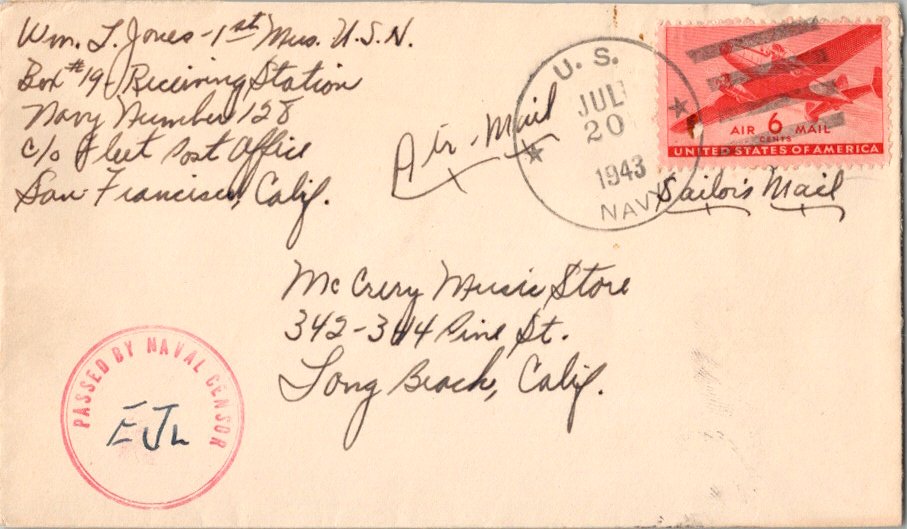 Wm. L. Jones - 1st Mus. U.S.N.
Box #19 - Receiving Station
Navy Number 128
c/o Fleet Post Office
San Francisco, Calif.
Air-Mail
U. S.
JUL
20
1943
NAVY
AIR 6 MAIL
CENTS
UNITED STATES OF AMERICA
Sailor's Mail
McCrery Music Store
342-344 Pine St.
Long Beach, Calif.
PASSED BY NAVAL CENSOR
EJL